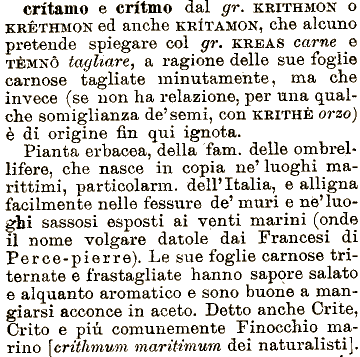 crítamo e crítmo dal gr. KRITHMON o
KRÊTHMON ed anche KRÍTAMON, che alcuno
pretende spiegare col gr. KREAS carne e
TÈMNÔ tagliare, a ragione delle sue foglie
carnose tagliate minutamente, ma che
invece (se non ha relazione, per una qual-
che somiglianza de' semi, con KRITHÊ orzo)
è di origine fin qui ignota.
Pianta erbacea, della fam. delle ombrel-
lifere, che nasce in copia ne' luoghi ma-
rittimi, particolarm. dell'Italia, e alligna
facilmente nelle fessure de' muri e ne' luo-
ghi sassosi esposti ai venti marini (onde
il nome volgare datole dai Francesi di
Perce-pierre). Le sue foglie carnose tri-
ternate e frastagliate hanno sapore salato
e alquanto aromatico e sono buone a man-
giarsi acconce in aceto. Detto anche Crite,
Crito e piú comunemente Finocchio ma-
rino [crithmum maritimum dei naturalisti].